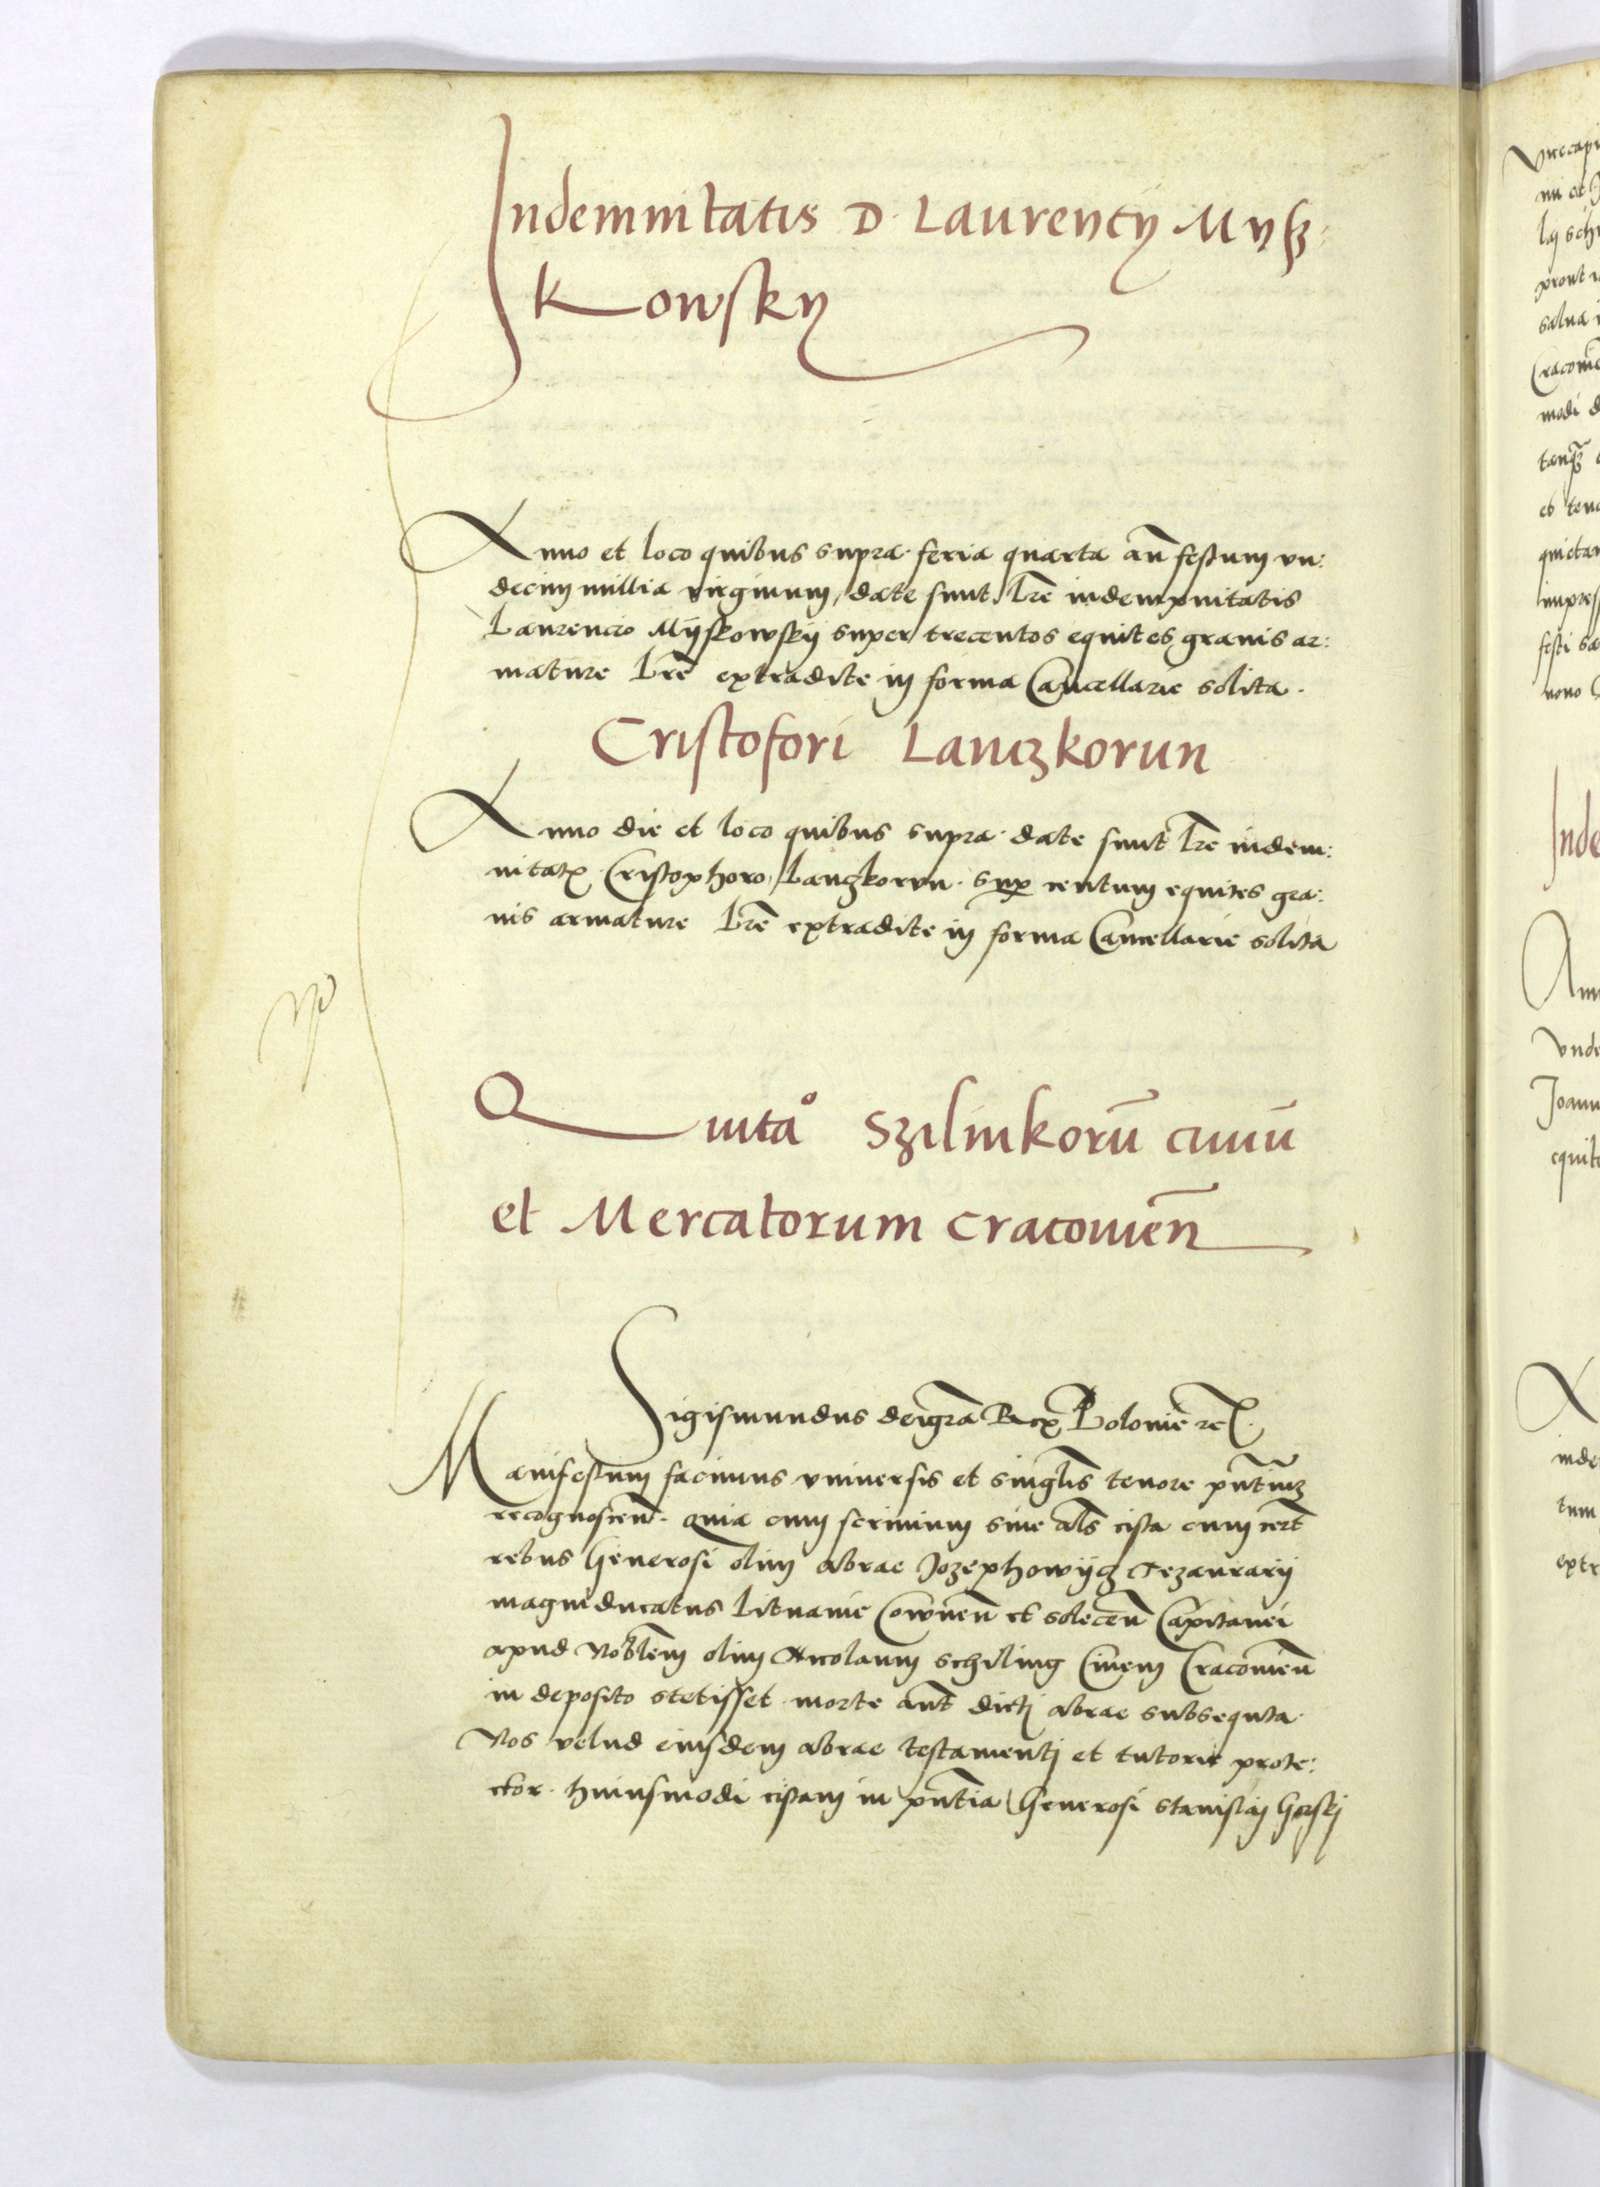 Indemnitatis D. Laurencÿ Mÿß:
Kowskÿ
Anno et loco quibus supra feria quarta an̄ festum un:
decim millia virginum, date sunt Lr̄e indempnitatis
Laurencio Mÿskowskÿ super trecentos equites gravis ar:
mature Lr̄e extradite in forma Cancellarie solita.
Cristofori Lanczkorun
Anno die et loco quibus supra date sunt Lr̄e indem:
nitatꝭ Cristophoro Lanczkorun. suꝑ centum equites gra:
vis armature Lr̄e extradite in forma Cancellarie solita
Quitaº Szilinkorū civiū
et Mercatorum Cracovien̄
Sigismundus dei gr̄a Rex Polonie
Manifestum facimus universis et singl̄is tenore pn̄tiuꝫ
recognoscen̄. quia cum scrinium sive al̄s cista cum cert̄
rebus Generosi olim Abrae Jozephowÿcz Tezaurarÿ
magni ducatus Lituanie Cownen̄ et solecen̄ Capitanei
apud Nobl̄em olim Nicolaum Schiling Civem Cracovien̄
in deposito stetisset morte an̄t dictj Abrae subsequta
Nos velud eiusdem Abrae testamentj et tutorie prote:
ctor. huiusmodi cistam in pn̄tia Generosi Stanislaj Gorskj